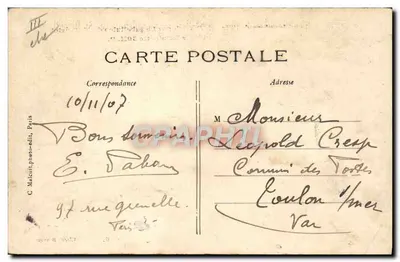 III
CARTE POSTALE
Correspondance
Adresse
10/11/07
Bons souvenirs
E.
97 rue grenelle
Paris
M Monsieur
Leopold Cresp
Commis des Postes
Toulon s/mer
Var
C Malcuit, phot-édit, Paris
CPAPHIL